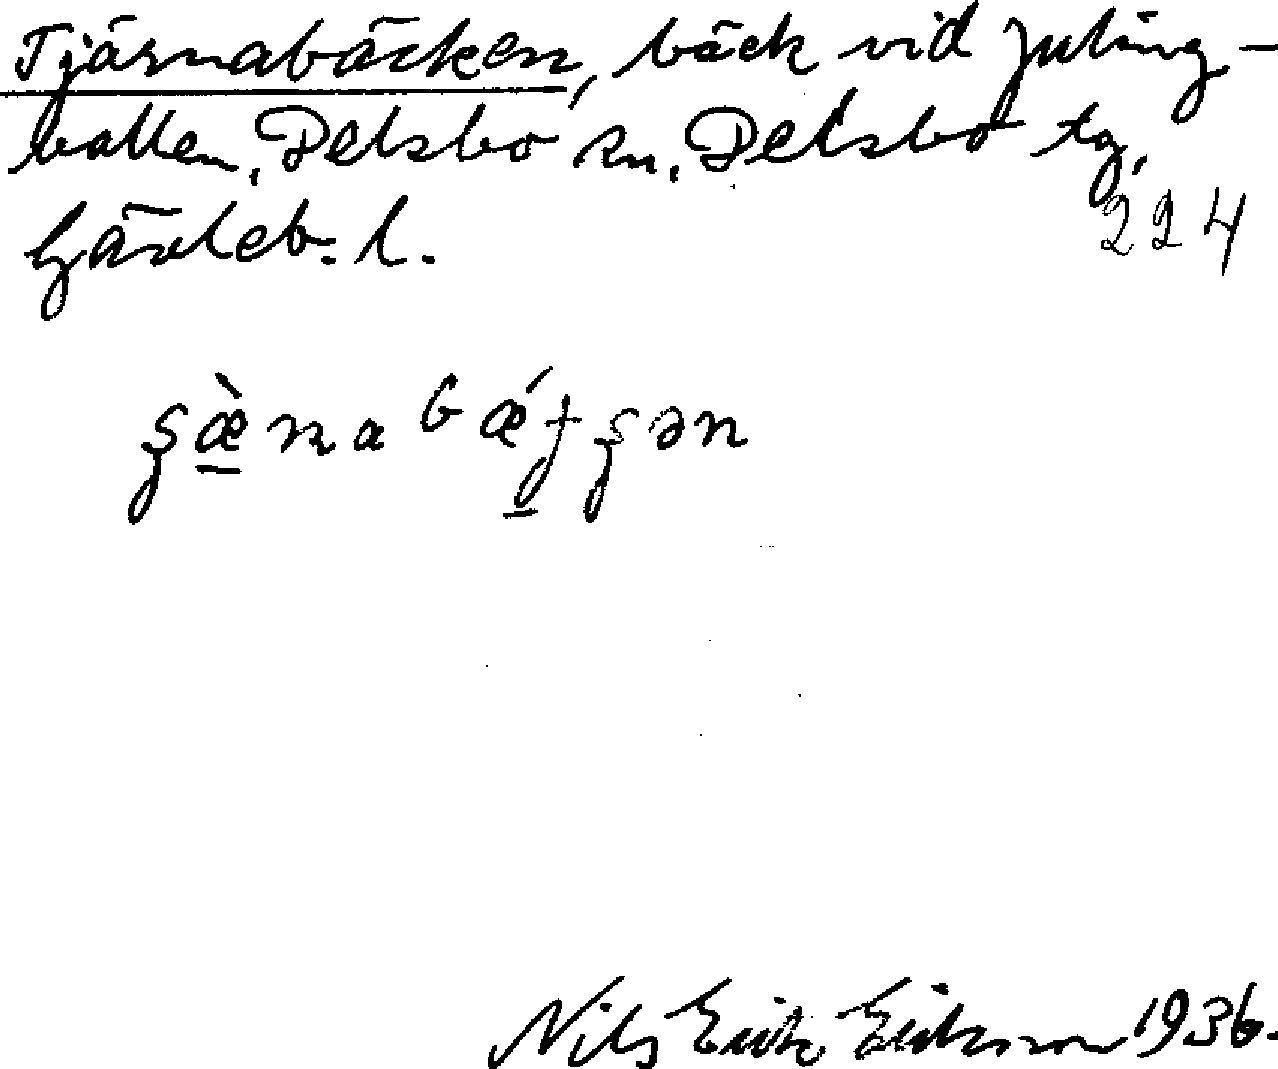 Tjärnabäcken, bäck vid Juling-
vallen, Delsbo sn, Delsbo tg,
Gävleb. l.
224
Nils Erik Eriksson 1936.